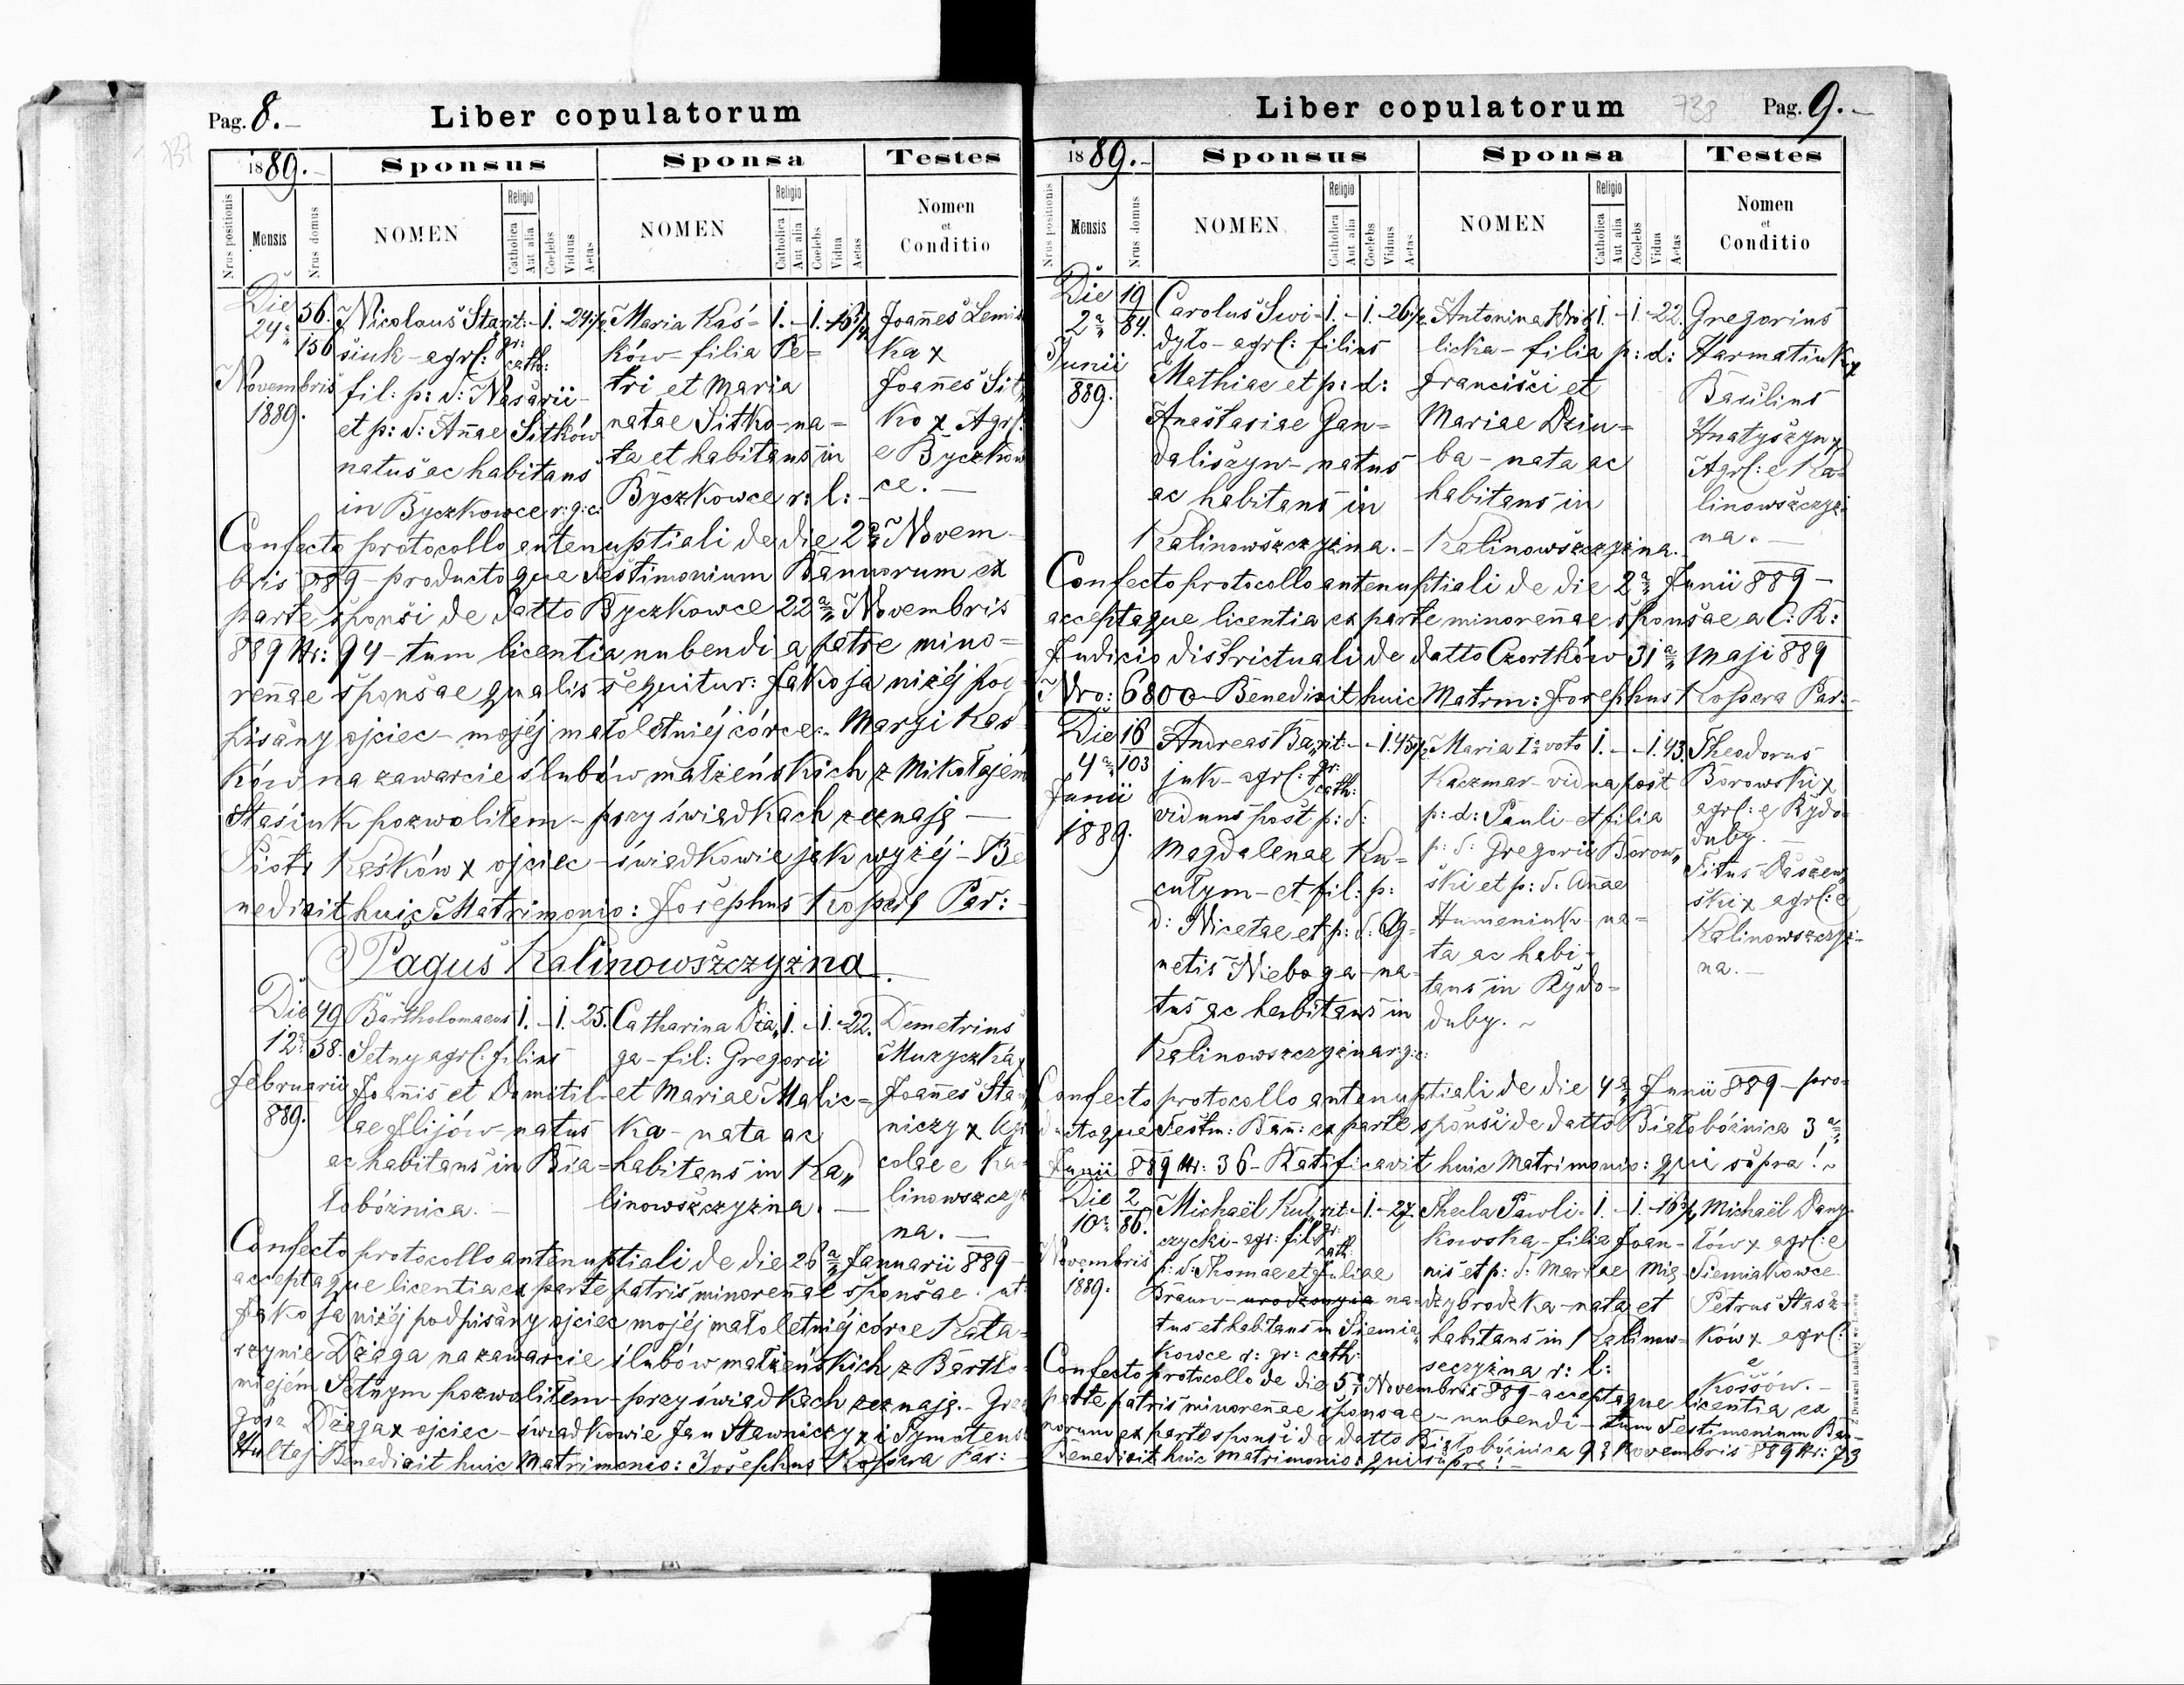 Pag. 8.
Liber copulatorum
1889.
Sponsus
Sponsa
Testes
Nrus positionis
Mensis
Nrus domus
NOMEN
Religio
Catholica
Aut alia
Coelebs
Viduus
Aetas
NOMEN
Religio
Catholica
Aut alia
Coelebs
Vidua
Aetas
Nomen
et
Conditio
Die
24a
Novembris
1889.
56.
156
Nicolaus Sta
siuk - agrl:
fil: p: d: Nasarii
et p: d: Annae Sitków
natus ac habitans
in Byczkowce r: g: c:
rit:
gr:
cath:
1. 24 1/2
Maria Kaś=
ków - filia Pe=
tri et Maria
natae Sitko - na=
ta et habitans in
Byczkowce r: l:
1. - 1.
Joannes
ka x
Joannes Sit
ko x Agrl:
e Byczkow
ce. -
Confecto protocollo antenuptiali de die Novem
bris 889 - productoque Testimonium Bannorum ex
parte sponsi de datto Byczkowce 22a Novembris
889 Nr: 94 - tum licentia nubendi a patre mino=
rennae sponsae qualis sequitur: Jako ja niżéj pod
pisany ojciec - mojéj małoletniéj córce - Maryi Kaś
ków na zawarcie ślubów małżeńskich z Mikołajem
Stasiuk pozwoliłem - przy świadkach zeznaję -
Piotr Kaśków x ojciec - świadkowie jak wyżéj - Be
nedixit huic Matrimonio: Josephus Kopera Par: -
Pagus Kalinowszczyzna.
Die
12a
Februarii
889.
49
58.
Bartholomaeus
Setny agrl: filius
Joannis et Domitil=
lae Ilijów natus
ac habitans in Bia=
łobóżnica. -
1. - 1. 25.
Catharina Dża„
ga - fil: Gregorii
et Mariae Malic=
ka - nata ac
habitans in Ka„
linowszczyzna. -
1. - 1. 22.
Demetrius
Muzyczka x
Joannes Sta
niczy x Agri
colae e Ka
linowszczyz
na. -
Confecto protocollo antenuptiali de die 26a Januarii 889 -
acceptaque licentia ex parte patris minorennae sponsae: ut
Jako ja niżéj podpisany ojciec mojéj małoletniéj córce Kata=
rzynie Dżaga na zawarcie ślubów małżeńskich z Bartło=
miejém Setnym pozwoliłem - przy świadkach zeznaję. - Grze
góż Dżaga x ojciec - świadkowie Jan Stawniczy x i Tymoteusz
Hultaj Benedixit huic Matrimonio: Josephus Kopera Par: -
Liber copulatorum
738
Pag. 9. -
1889. -
Sponsus
Sponsa
Testes
Nrus positionis
Mensis
Nrus domus
NOMEN
Religio
Catholica
Aut alia
Coelebs
Viduus
Aetas
NOMEN
Religio
Catholica
Aut alia
Coelebs
Vidua
Aetas
Nomen
et
Conditio
Die
2a
Junii
889.
19
84.
Carolus Świ=
dyło - agrl: filius
Mathiae et p: d:
Anastasiae Gan=
daliszyn - natus
ac habitans in
Kalinowszczyzna. -
1. - 1. 26 1/2
Antonina
licka - filia p: d:
Francisci et
Mariae Dziu=
ba - nata ac
habitans in
Kalinowszczyzna.
1. - 1. 22.
Gregorius
Harmatiuk x
Basilius
Hnatyszyn x
Agrl: e Ka
linowszczyz
na. -
Confecto protocollo antenuptiali de die 2a Junii 889 -
acceptaque licentia ex parte minorennae sponsae a C: K:
Judicio districtuali de datto Czortków 31a Maji 889
Nro: 6800 - Benedixit huic Matrm: Josephus Kopera Par: -
Die
4a
Junii
1889.
16
103
Andreas Ba
juk - agrl:
viduus post p: d:
Magdalenae Ku=
cułym - et fil: p:
d: Nicetae et p: d: Ag=
netis Nieboga - na
tus ac habitans in
Kalinowszczyzna r: g: c:
rit:
gr:
cath:
1. 45 1/2
Maria 1o voto
Kaczmar - vidua post
p: d: Pauli et filia
p: d: Gregorii Borow„
ski et p: d: Annae
Humeniuk - na=
ta ac habi=
tans in Rydo=
duby.
1. - 1. 43.
Theodorus
Borowski x
agrl: e Rydo
duby. -
Titus Daszew„
ski x agrl: e
Kalinowszczyz-
na. -
Confecto protocollo antenuptiali de die 4a Junii 889 - pro=
ductoque Testm: Bann: ex parte sponsi de datto Białobóżnica 3a
Junii 889 Nr: 36 - Ratificavit huic Matrimonio: qui supra!
Die
10a
Novembris
1889.
2
86.
Michaël Kul
czycki - agr: fil:
p: d: Thomae et Juliae
Braun - urodzonyna na=
tus et habitans in Siemia„
kowce r: gr: cath:
rit:
gr:
cath:
1. - 27.
Thecla Pawli=
kowska - filia Joan=
nis et p: d: Mariae Mię
dzybrodzka - nata et
habitans in Kalinow=
szczyzna r: l:
1. - 1.
Michaël Dany
łów x agrl: e
Siemiakowce
Petrus Stasz=
ków x agrl:
e
Kossów. -
Confecto protocollo de die 5a Novembris 889 - acceptaque licentia ex
parte patris minorennae sponsae - nubendi - tum Testimonium Ban=
norum ex parte sponsi de datto Białobóżnica 9a Novembris 889 Nr: 73
Benedixit huic Matrimonio: qui supra! -